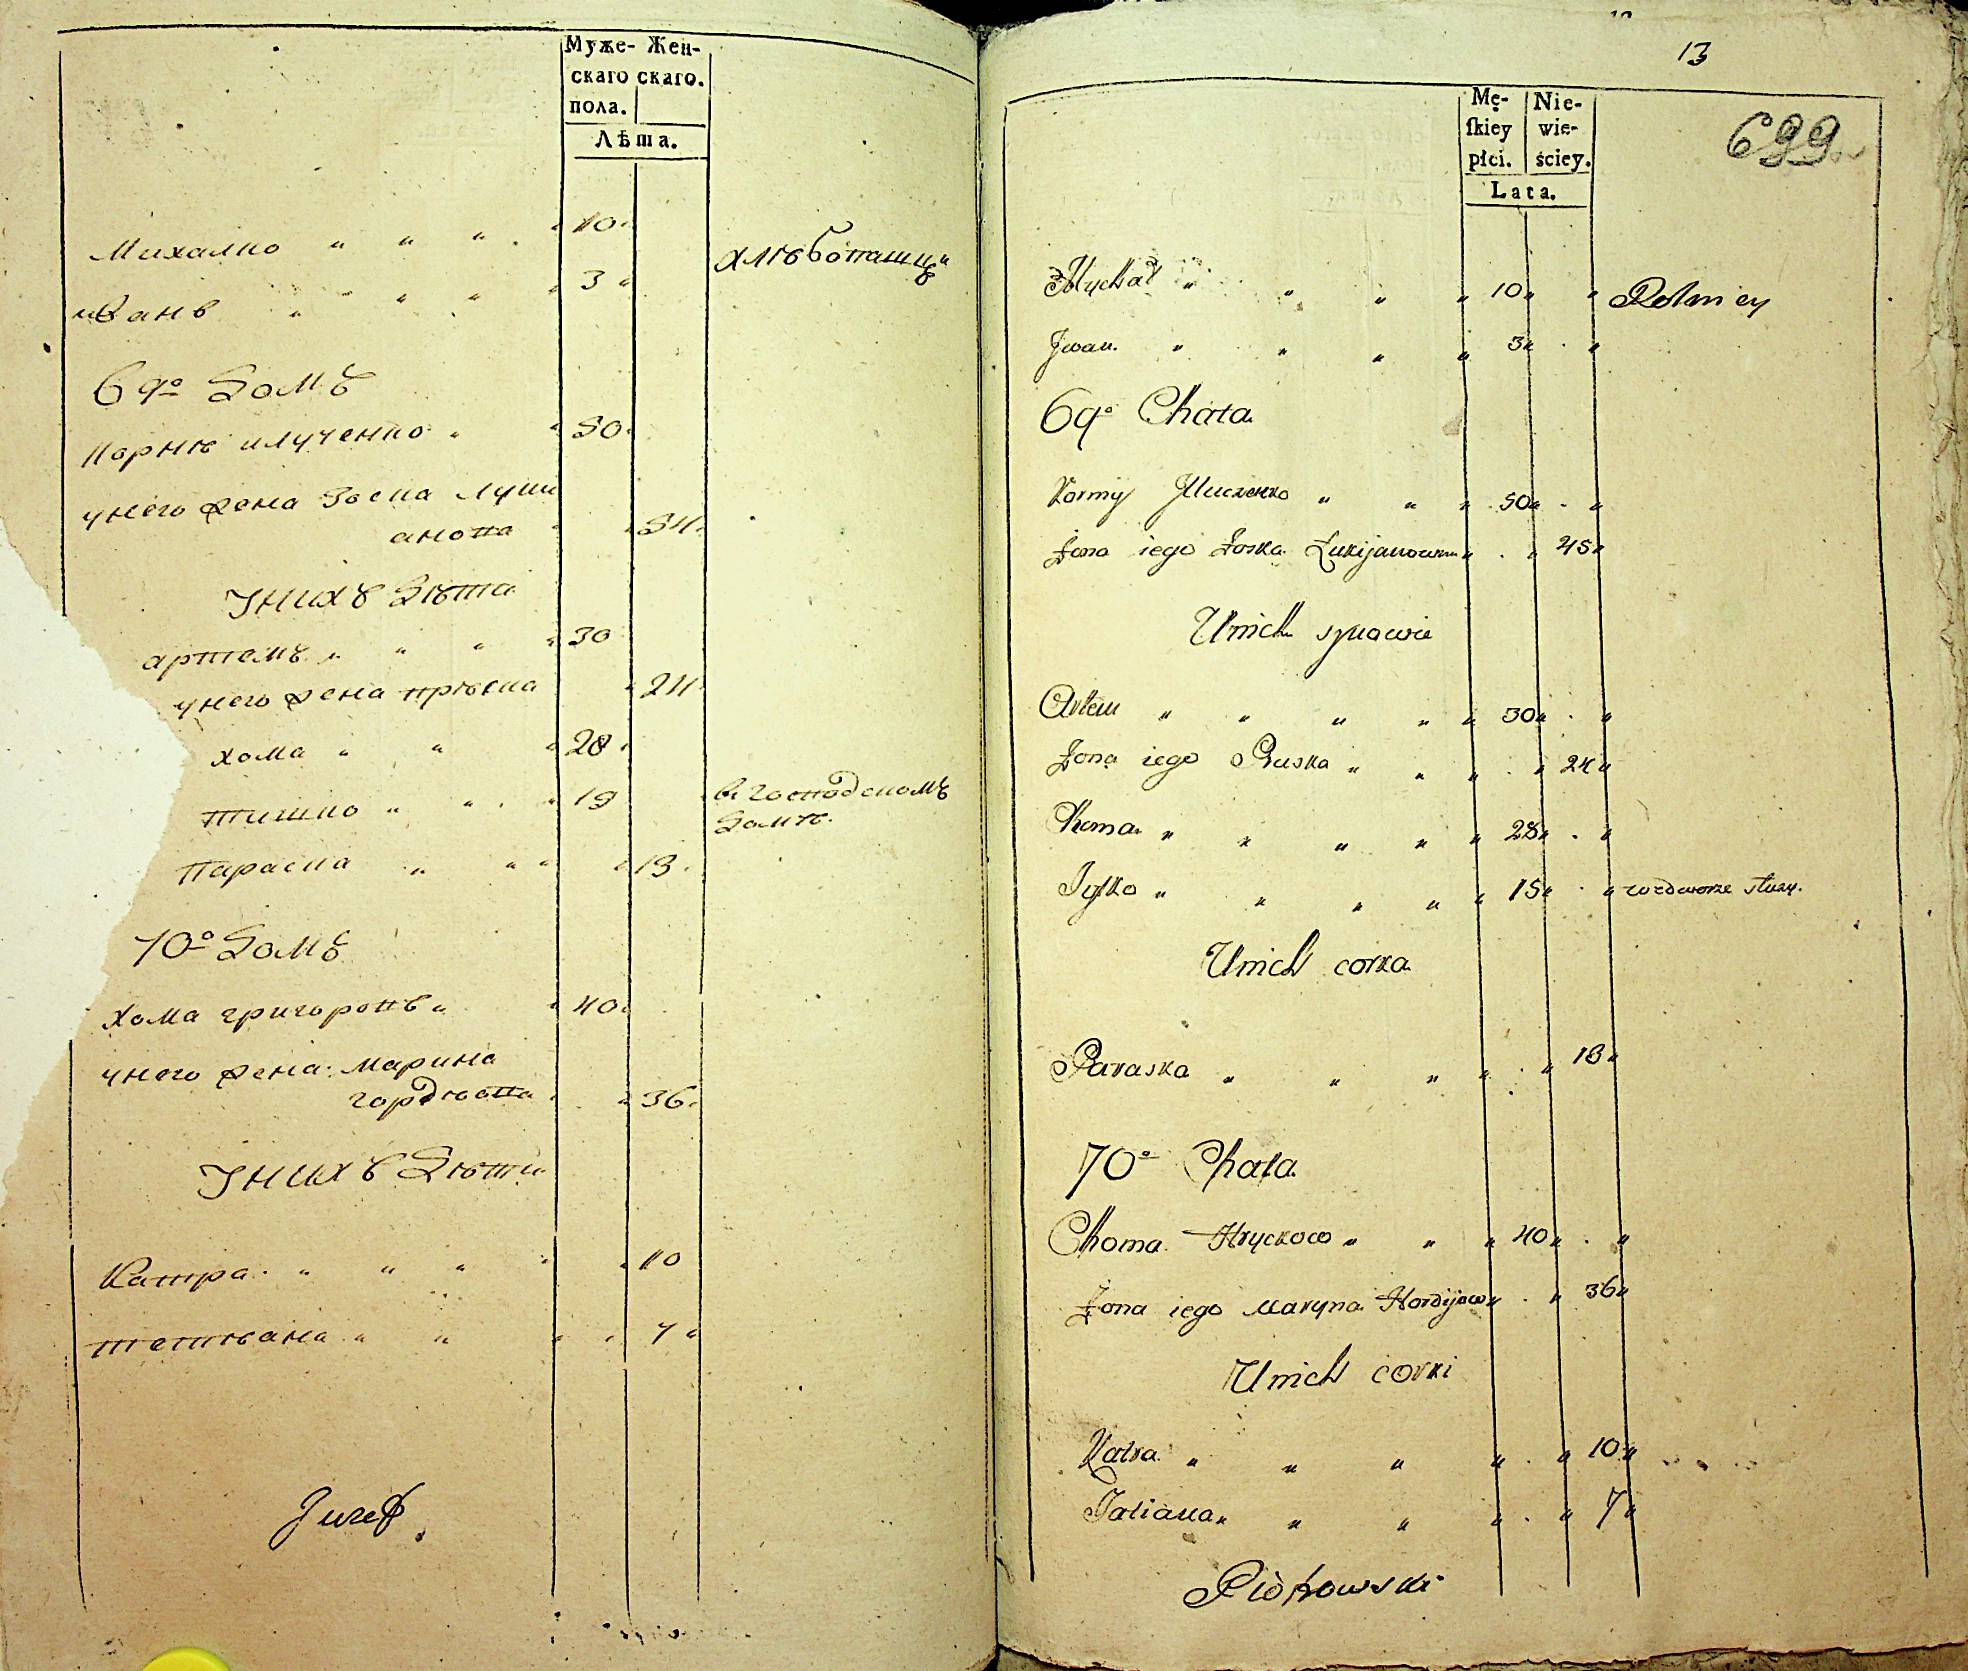 Муже- Жен-
скаго скаго.
пола.
Лѣта.
Михалко " " " " 10 "
хлѣбопашцы
иванъ " " " " 3 "
69º Домъ
Корнѣ илученко " " 50 "
унего жена Зоска луки
анова " " 54 "
Унихъ Дѣти
артемъ " " " " 30
унего жена прѣска " 24 "
хома " " " 28 "
тишко " " " 19
в господскомъ
Домѣ.
Параска " " " " 13 "
70º Домъ
хома григоровъ " " 40 "
унего жена марина
гордѣева " " 36 "
Унихъ Дѣти
Катра " " " " " 10
тетиѣана " " " " 7 "
Józef
13
699
Mę- Nie-
ſkiey wie-
płci. ściey.
Lata.
Mychał " " " " 10 " " Rolnicy
Jwan " " " " 3 " "
69º Chata
Korniy Jluczenko " " " 50 " "
Żona iego Zoska Łukijanowna " " 45 "
Unich synowie
Artem " " " " " 30 " "
Żona iego Pruska " " " " 24 "
Koma " " " " " 28 " "
Tyſko " " " " " 15 " " we dworze służy.
Unich corka
Paraska " " " " " 13 "
70º Chata
Choma Hryckow " " " 40 " "
Żona iego Maryna Hordijow " " 36 "
Unich corki
Katra " " " " " 10 "
Tatiana " " " " " 7 "
Piotrowski